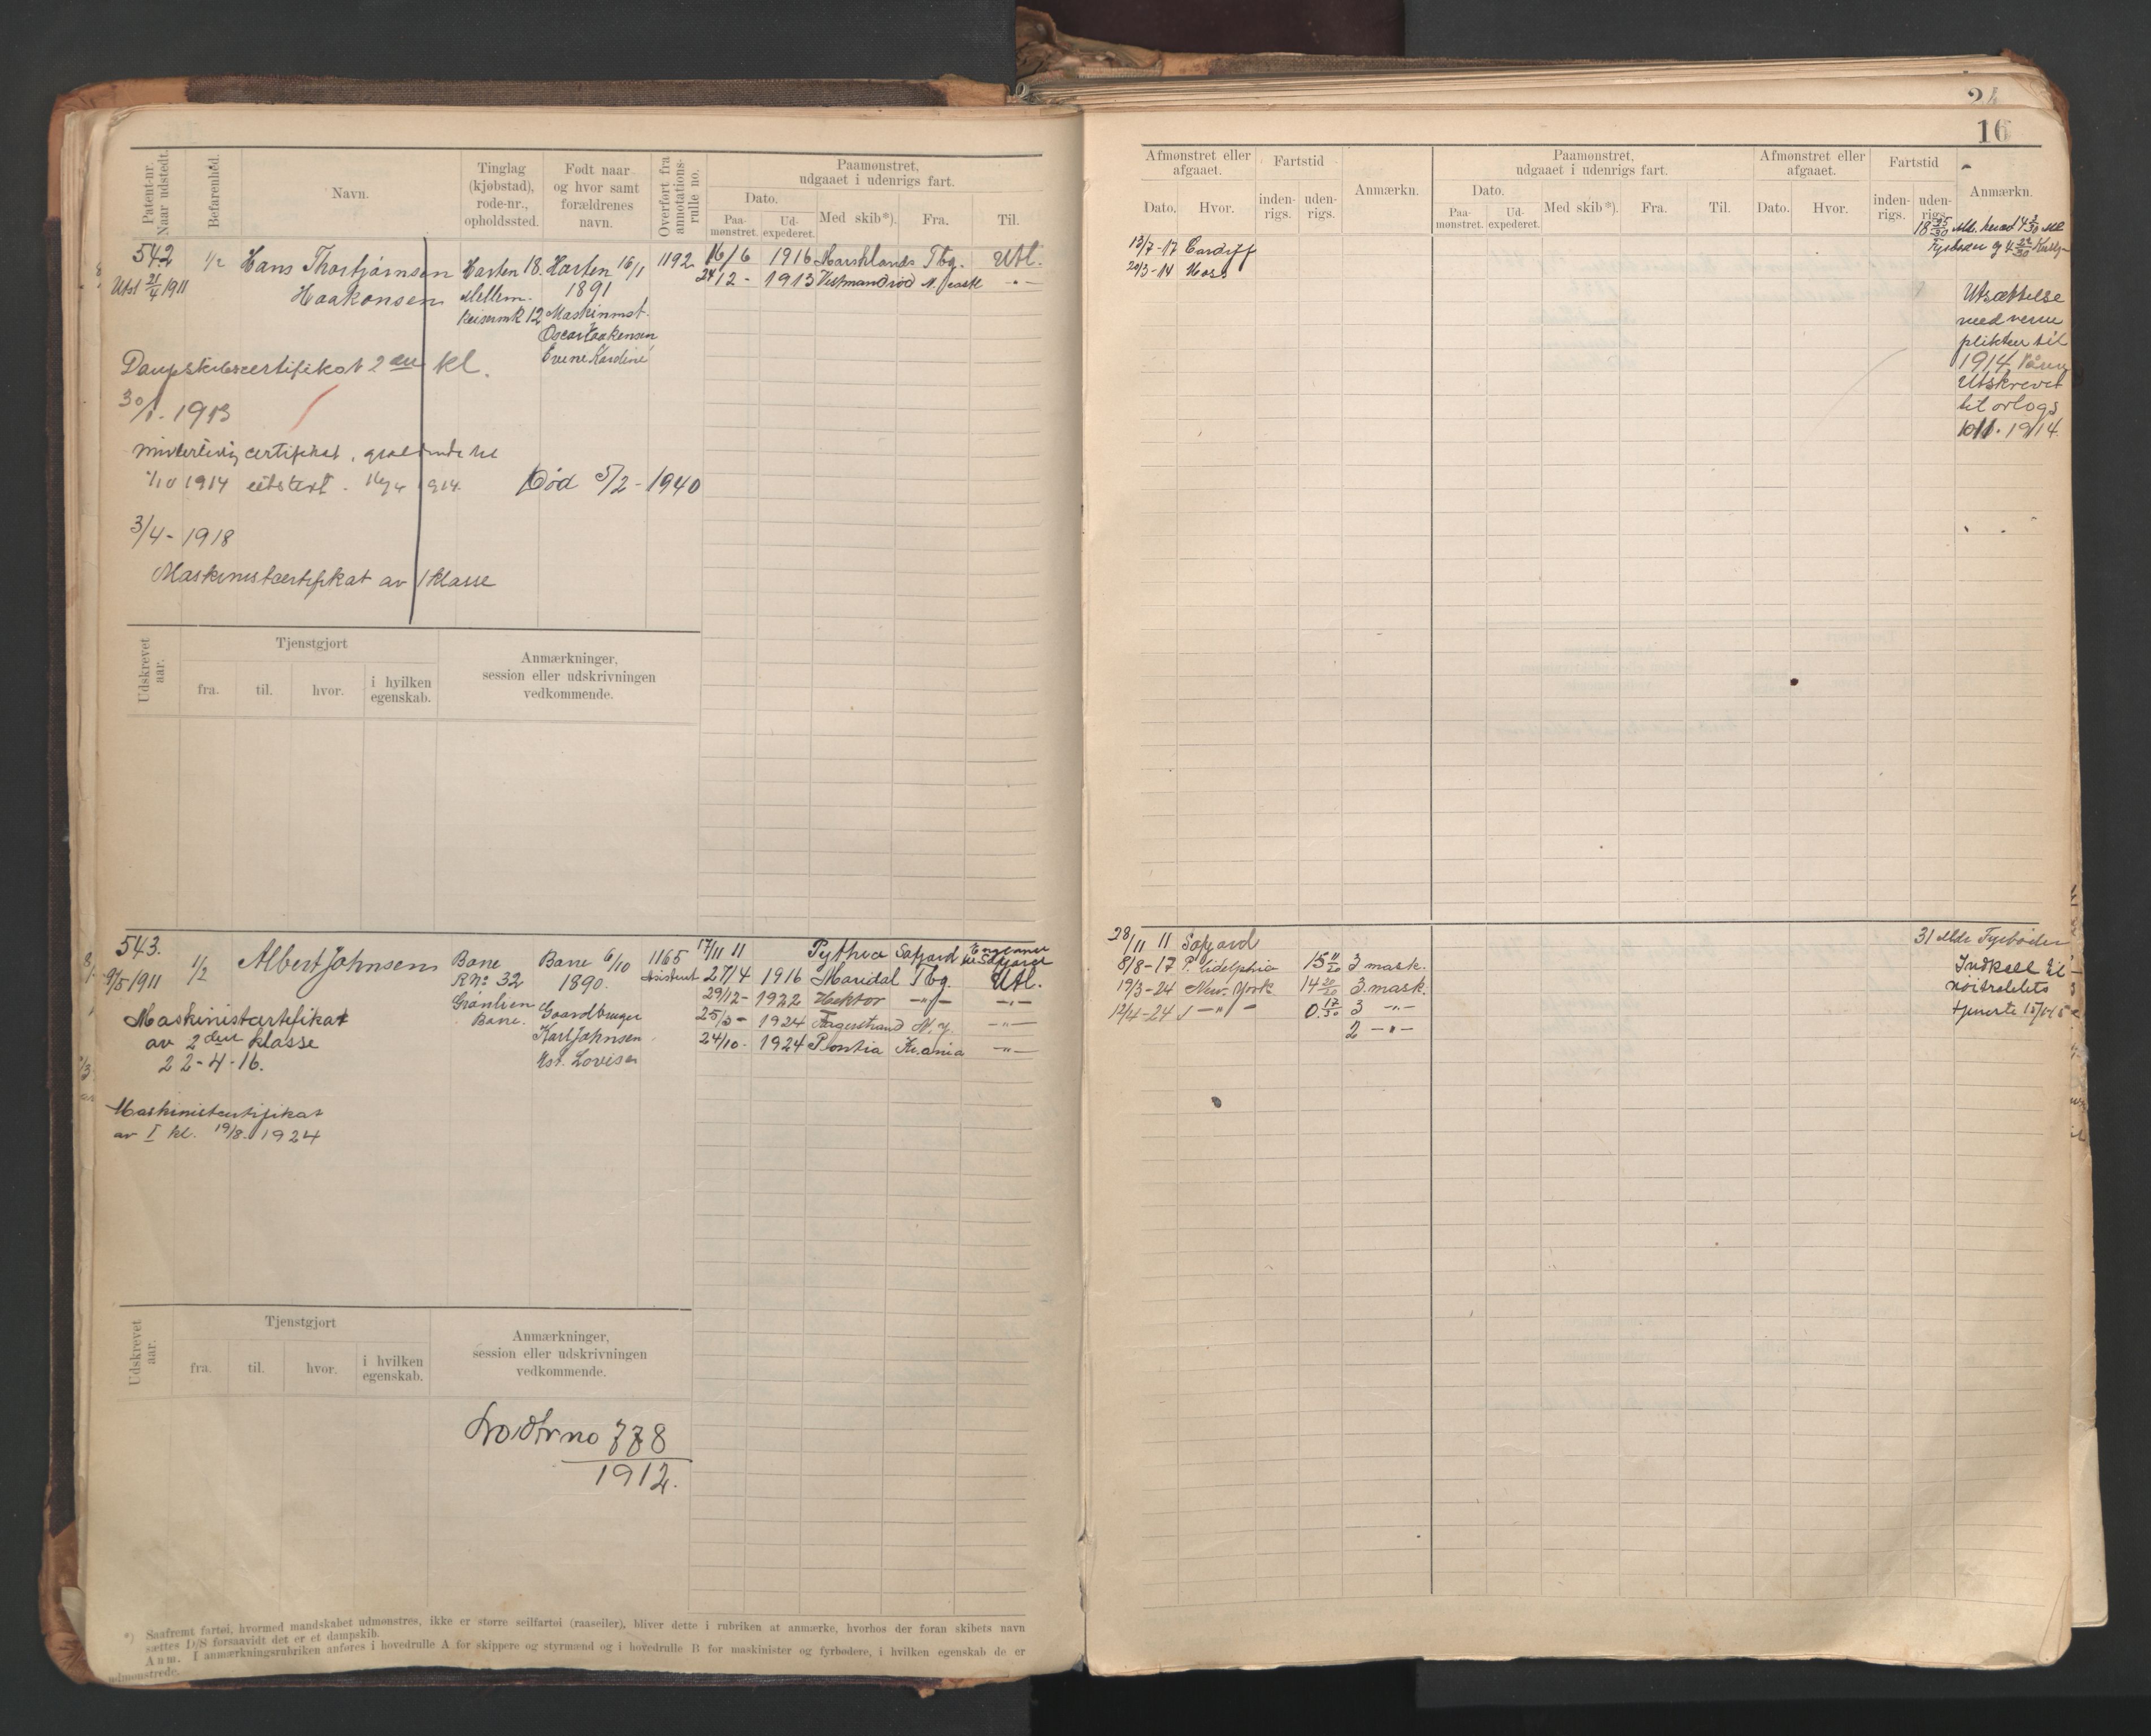 24
16
Patent-nr. Naar udstedt.
Befarenhed.
Navn.
Tinglag (kjøbstad), rode-nr., opholdssted.
Født naar og hvor samt forældrenes navn.
Overført fra annotations-rulle no.
Paamønstret, udgaaet i udenrigs fart.
Dato.
Paa-mønstret.
Ud-expederet.
Med skib*).
Fra.
Til.
Afmønstret eller afgaaet.
Dato.
Hvor.
Fartstid
inden-rigs.
uden-rigs.
Anmærkn.
Paamønstret, udgaaet i udenrigs fart.
Dato.
Paa-mønstret.
Ud-expederet.
Med skib*).
Fra.
Til.
Afmønstret eller afgaaet.
Dato.
Hvor.
Fartstid
inden-rigs.
uden-rigs.
Anmærkn.
542
Utst 21/4 1911
1/2
Hans Thorbjørnsen
Haakonsen
Horten 18.
Mellem.
Keisermk 12
Horten 16/1
1891
Maskinmst.
Oscar Haakonsen
Evene Kardine
1192.
16/6 1916 Marsklands Tbg. Utl.
24/12 - 1913 Vestmandrod N.castl -"-
13/7-17 Cardiff
20/3-14 Moss
Dampskibscertifikat 2den kl.
30/1. 1913
certifikat, gjældende til
1/10 1914 utstedt. 1914
Død 5/2-1940
3/4-1918
Maskinistcertifikat av 1 klasse
Utsættelse
med verne
plikten til
1914.
Utskrevet
til orlogs
10/1. 1914.
Udskrevet aar.
Tjenstgjort
fra.
til.
hvor.
i hvilken egenskab.
Anmærkninger, session eller udskrivningen vedkommende.
543.
9/5-1911
1/2
Albert Johnsen
Borre
R No 32
Grønlien
Borre.
Borre 6/10
1890.
Gaardbruger
Karl Johnsen
Hst. Lovise
1165
Asistent
17/11 11 Pythia Safjord
27/4 1916 Maridal Tbg. Utl.
29/12- 1922 Hektor -"- -"-
25/3- 1924 Fagerstrand N.Y. -"-
24/10- 1924 Pontia Kr.ania -"-
28/11 11 Safjord
8/8-17 P. lidelphia 15 11/30 3 mask.
19/3-24 New. York 14 20/30 3 mask.
12/4-24 -"- 0. 17/30 3 -"-
2 -"-
31 Mdr Fyrbøder
Indkall til
nøitralitets
tjeneste
Maskinistcertifikat
av 2den klasse
22-4-16.
Maskinistcertifikat
av I kl. 19/8. 1924
Udskrevet aar.
Tjenstgjort
fra.
til.
hvor.
i hvilken egenskab.
Anmærkninger, session eller udskrivningen vedkommende.
Lodtr no 778
1912.
*) Saafremt fartøi, hvormed mandskabet udmønstres, ikke er større seilfartøi (raaseiler), bliver dette i rubriken at anmærke, hvorhos der foran skibets navn
sættes D/S forsaavidt det er et dampskib.
Anm. I anmærkningsrubriken anføres i hovedrulle A for skippere og styrmænd og i hovedrulle B for maskinister og fyrbødere, i hvilken egenskab de er
udmønstrede.